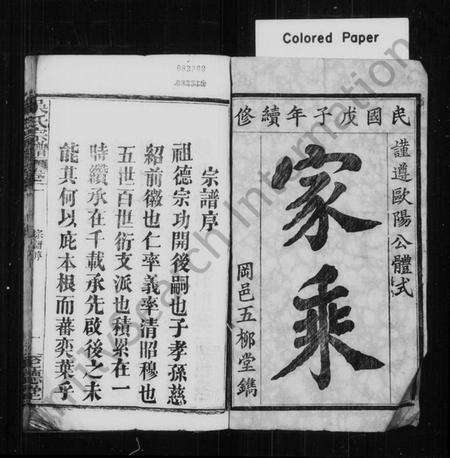 Colored Paper
民國戊子年續修
謹遵歐陽公體式
家乘
岡邑五柳堂鐫
宗譜序
祖德宗功開後嗣也子孝孫慈
紹前徽也仁率義率清昭穆也
五世百世衍支派也積累在一
時纘承在千載承先啟後之未
能其何以庇本根而蕃奕葉乎
吳氏宗譜
宗譜序
一
至德堂
Research Information